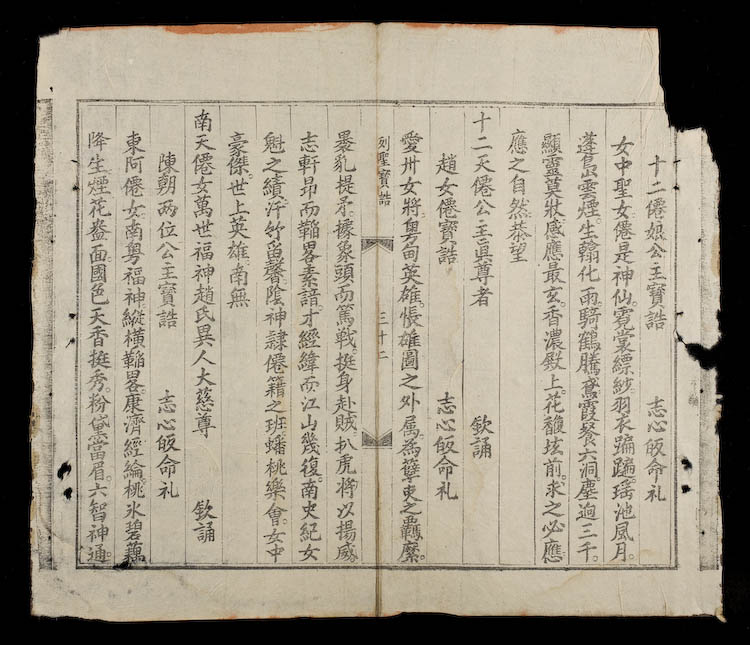 十二僊娘公主寳誥 志心皈命礼
女中聖女僊是神仙霓裳縹緲羽衣蹁躚瑶池風月
蓬島雲煙生翰化雨騎鶴騰鸞霞餐六洞塵逈三千
顯靈莫狀感應最玄香濃殿上花馥坛前求之必應
應之自然恭望
十二天僊公主真尊者 欽誦
趙女僊寳誥 志心皈命礼
愛州女將粤甸英雄悵雄圖之外属為孽吏之羈縻
列聖寳誥
三十二
暴乳提矛據象頭而篤戰挺身赴賊扒虎將以揚威
志軒昂而韜畧素諳才經緯而江山幾復南史紀女
魁之績汗竹畱馨陰神隷僊籍之班蟠桃樂會女中
豪傑世上英雄南無
南天僊女萬世福神趙氏異人大慈尊 欽誦
陳朝兩位公主寳誥 志心皈命礼
東阿僊女南粤福神縱橫韜畧康濟經綸桃氷碧藕
降生煙花盎面國色天香挺秀粉黛當眉六智神通